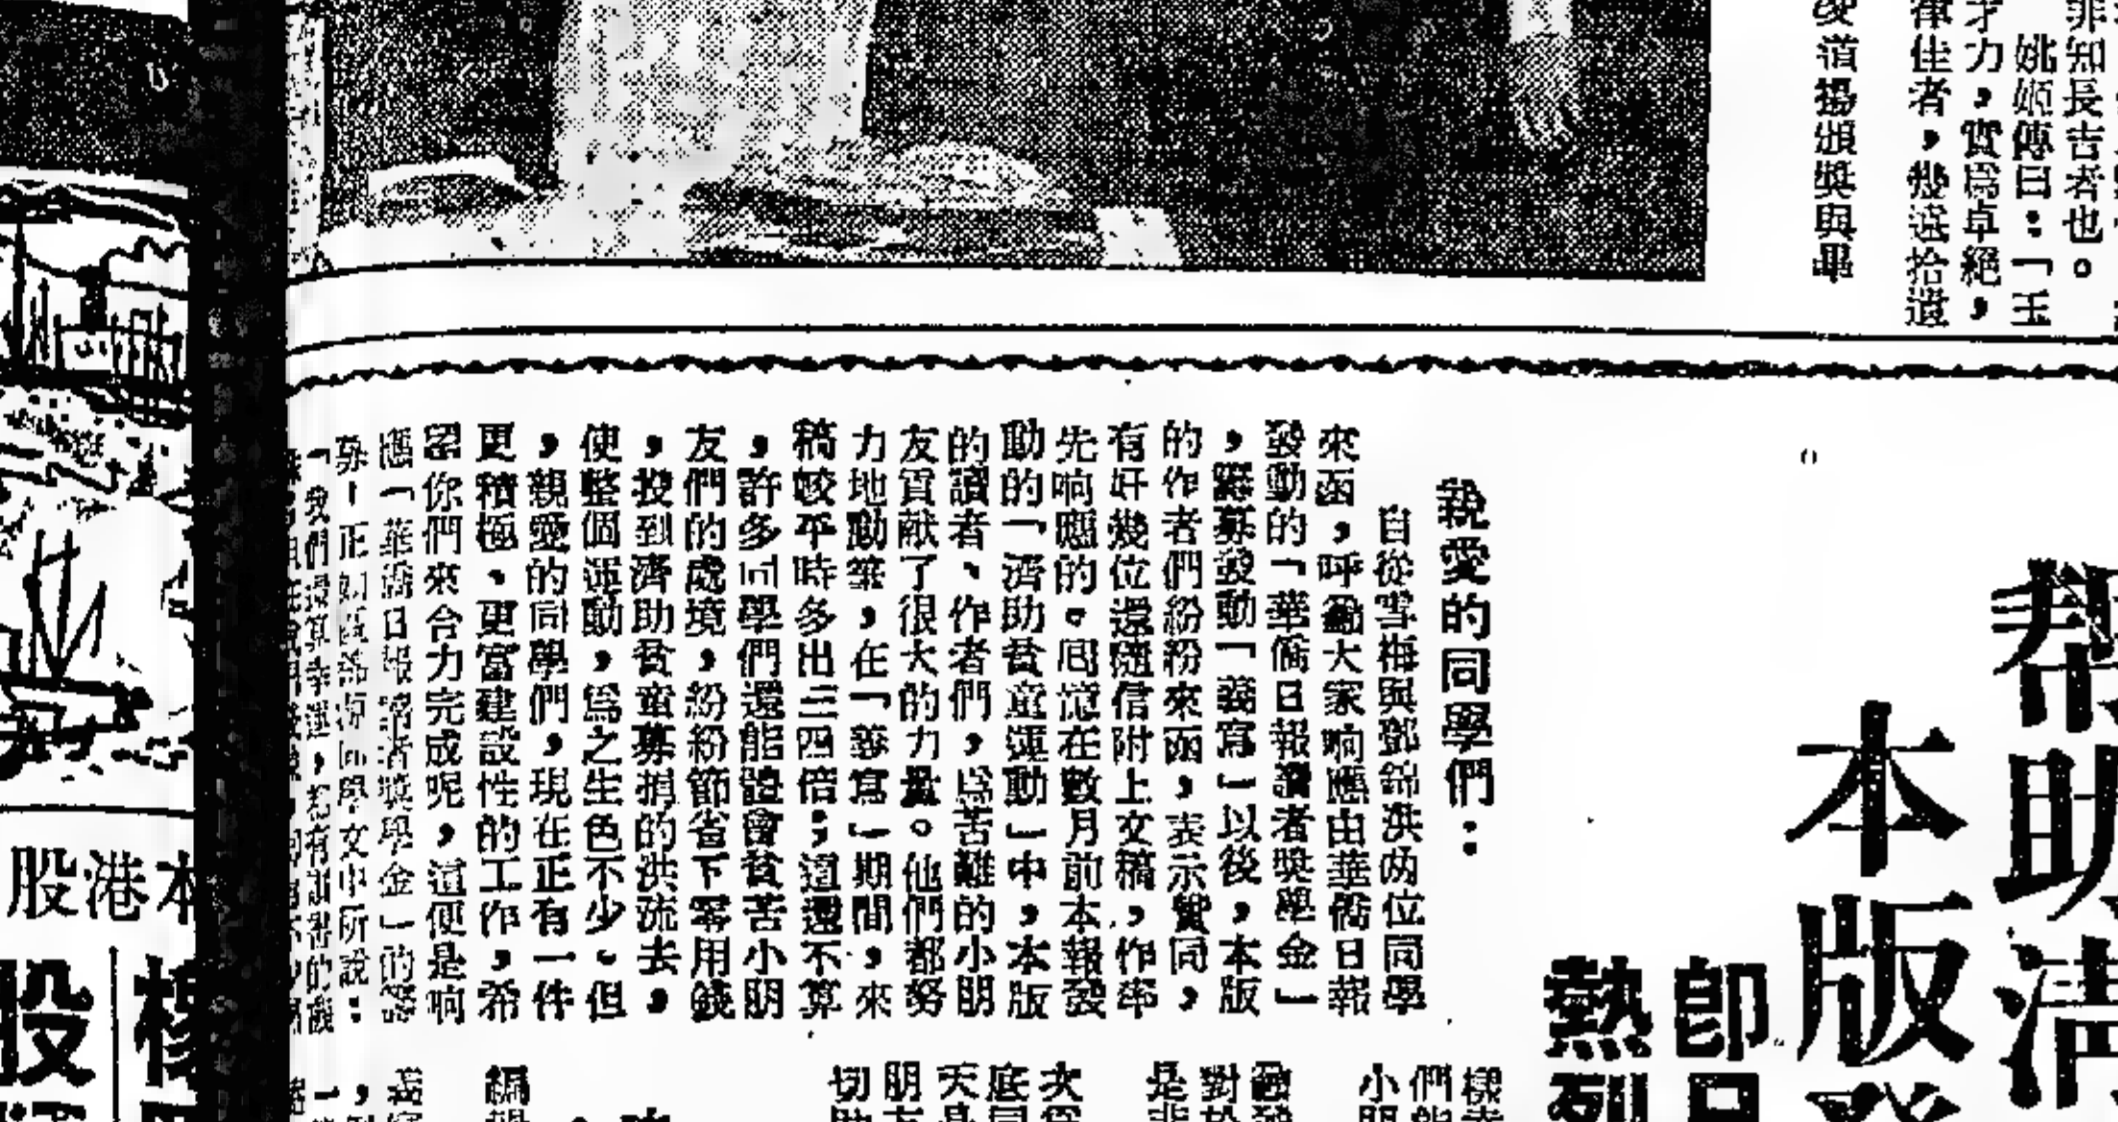 非知長吉者也。
姚姬傳曰：「王
才力，實爲卓絕，
律佳者，幾遑拾遺
道揚頒獎與畢
幫助清
本版發
即日
熱烈
親愛的同學們：
自從雪梅與鄧錦洪两位同學
來函，呼籲大家响應由華僑日報
發動的「華僑日報讀者獎學金」
，籌募發動「義寫」以後，本版
的作者們紛紛來函，表示贊同，
有好幾位還隨信附上文稿，作率
先响應的。回憶在數月前本報發
動的「濟助貧童運動」中，本版
的讀者、作者們，爲苦難的小朋
友貢献了很大的力量。他們都努
力地動筆，在「義寫」期間，來
稿較平時多出三四倍；這還不算
，許多同學們還能體會貧苦小朋
友們的處境，紛紛節省下零用錢
，投到濟助貧童募捐的洪流去，
使整個運動，爲之生色不少。但
，親愛的同學們，現在正有一件
更積極、更富建設性的工作，希
望你們來合力完成呢，這便是响
應「華僑日報讀者獎學金」的籌
募！正如 同學文中所說：
「我們 有讀書的機
樣
們能
小朋
對於
是非
次
底同
天是
朋友
切助
編
本港股
股